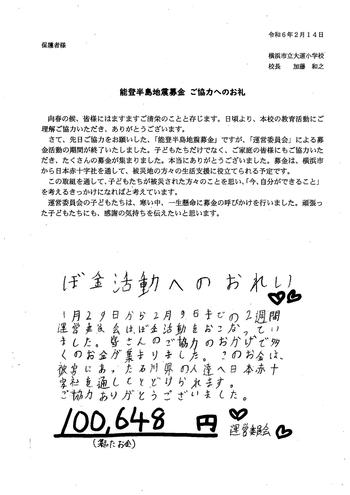 令和6年2月14日
保護者様
横浜市立大道小学校
校長 加藤 和之
能登半島地震募金 ご協力へのお礼
向春の候、皆様にはますますご清栄のことと存じます。日頃より、本校の教育活動にご
理解ご協力いただき、ありがとうございます。
さて、先日ご協力をお願いした、「能登半島地震募金」ですが、「運営委員会」による募
金活動の期間が終了いたしました。子どもたちだけでなく、ご家庭の皆様にもご協力いた
だき、たくさんの募金が集まりました。本当にありがとうございました。募金は、横浜市
から日本赤十字社を通して、被災地の方々の生活支援に役立てられる予定です。
この取組を通して、子どもたちが被災された方々のことを思い、「今、自分ができること」
を考えるきっかけになればと考えています。
運営委員会の子どもたちは、寒い中、一生懸命に募金の呼びかけを行いました。頑張っ
た子どもたちにも、感謝の気持ちを伝えたいと思います。
ぼ金活動へのおれい
1月29日から2月9日までの2週間
運営委員会はぼ金活動をおこなってい
ました。皆さんのご協力のおかげで多
くのお金が集まりました。このお金は、
被害にあった石川県の人達へ日本赤十
字社を通してとどけられます。
ご協力ありがとうございました。
100,648 円
(集めたお金)
運営委員会